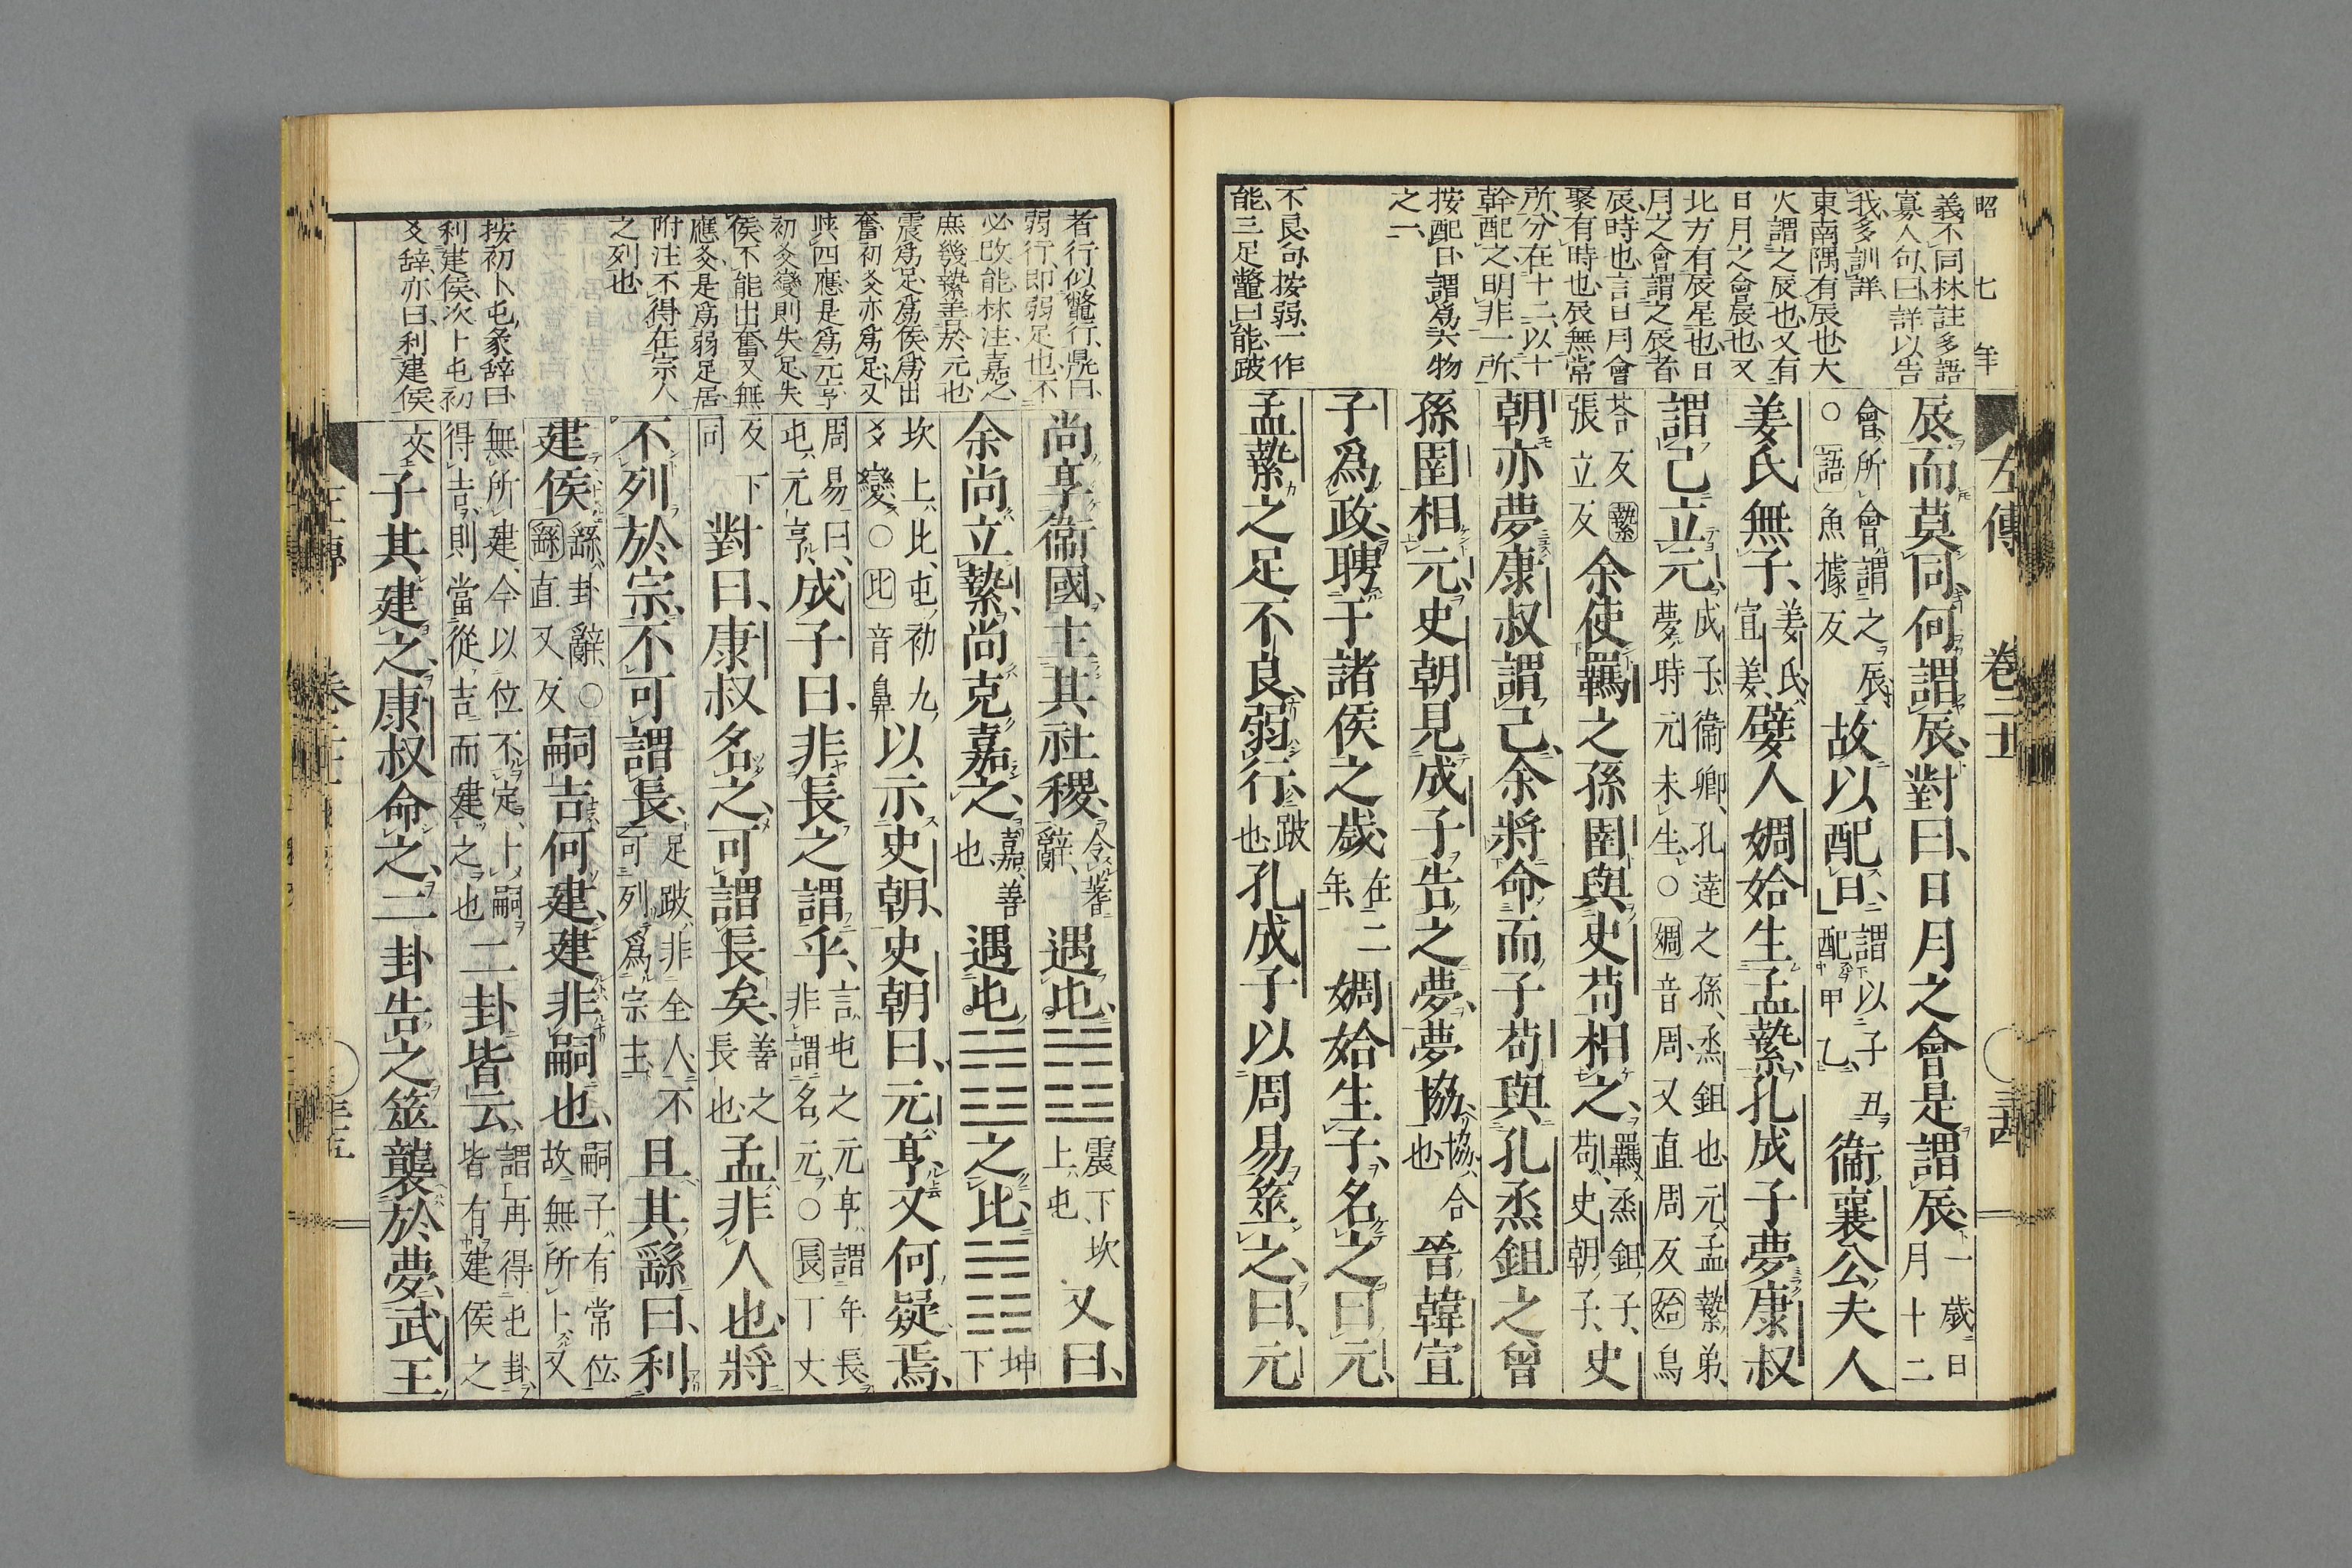 昭 七 年
左傳 卷二十 三十四
義不同林註多語
寡人句曰詳以告
我多訓詳
東南隅有辰也大
火謂之辰也又有
日月之會辰也又
北方有辰星也日
月之會謂之辰者
辰時也言日月會
聚有時也辰無常
所分在十二以十
幹配之明非一所
按配日謂爲六物
之一
不良句按弱一作
能三足鼈曰能跛
辰而莫同、何謂辰、對曰、日月之會是謂辰、一歲日月十二
會、所會謂之辰、○語魚據反故以配日、謂以子丑配甲乙、衞襄公夫人
姜氏無子、姜氏、宣姜、嬖人婤姶生孟縶、孔成子夢康叔
謂己立元、成子、衞卿孔達之孫烝鉏也、元、孟縶弟、夢時元未生、○婤音周又直周反姶烏
荅反縶張立反余使羈之孫圉與史苟相之、羈、烝鉏子、苟、史朝子、史
朝亦夢康叔謂己、余將命而子苟與孔烝鉏之曾
孫圉相元、史朝見成子告之夢、夢協、協、合也、晉韓宣
子爲政、聘于諸侯之歲、在二年、婤姶生子、名之曰元、
孟縶之足不良、弱行、跛也、孔成子以周易筮之、曰、元
者行似鼈行鼎曰
弱行即弱足也不
必改能林注嘉之
庶幾縶善於元也
震爲足爲侯爲出
奮初爻亦爲足又
與四應是爲元亨
初爻變則失足失
侯不能出奮又無
應爻是爲弱足居
附注不得在宗人
之列也
按初卜屯彖辭曰
利建侯次卜屯初
爻辭亦曰利建侯
尚享衞國、主其社稷、令蓍辭、遇屯、䷂震下坎上、屯、又曰、
余尚立縶、尚克嘉之、嘉、善也、遇屯䷂之比、䷇坤下
坎上、比、屯初九爻變、○比音鼻以示史朝、史朝曰、元亨、又何疑焉、
周易曰、屯、元亨、成子曰、非長之謂乎、言屯之元亨、謂年長、非謂名元、○長丁丈
反下同對曰、康叔名之、可謂長矣、善之長也、孟非人也、將
不列於宗、不可謂長、足跛、非全人、不可列爲宗主、且其繇曰、利
建侯、繇、卦辭、○繇直又反嗣吉何建、建非嗣也、嗣子、有常位、故無所卜、又
無所建、今以位不定、卜嗣得吉、則當從吉而建之也二卦皆云、謂再得屯卦、皆有建侯之
文子其建之、康叔命之、二卦告之、筮襲於夢、武王